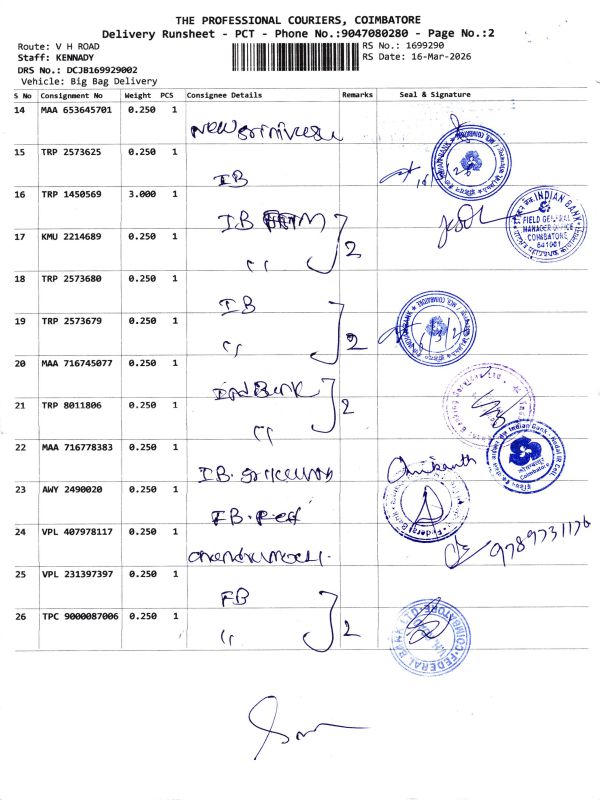 THE PROFESSIONAL COURIERS, COIMBATORE
Delivery Runsheet - PCT - Phone No.:9047080280 - Page No.:2
Route: V H ROAD
RS No.: 1699290
Staff: KENNADY
RS Date: 16-Mar-2026
DRS No.: DCJB169929002
Vehicle: Big Bag Delivery
S No Consignment No Weight PCS Consignee Details Remarks Seal & Signature
14 MAA 653645701 0.250 1
15 TRP 2573625 0.250 1 IB
16 TRP 1450569 3.000 1 IB
17 KMU 2214689 0.250 1 " 2
INDIAN BANK
FIELD GENERAL
MANAGER OFFICE
COIMBATORE
641001
18 TRP 2573680 0.250 1 IB
19 TRP 2573679 0.250 1 " 2
20 MAA 716745077 0.250 1 Ind Bank
21 TRP 8011806 0.250 1 " 2
22 MAA 716778383 0.250 1 IB.
23 AWY 2490020 0.250 1 IB.
24 VPL 407978117 0.250 1 9789731176
25 VPL 231397397 0.250 1 FB
26 TPC 9000087006 0.250 1 " 2
FEDERAL BANK LTD. COIMBATORE